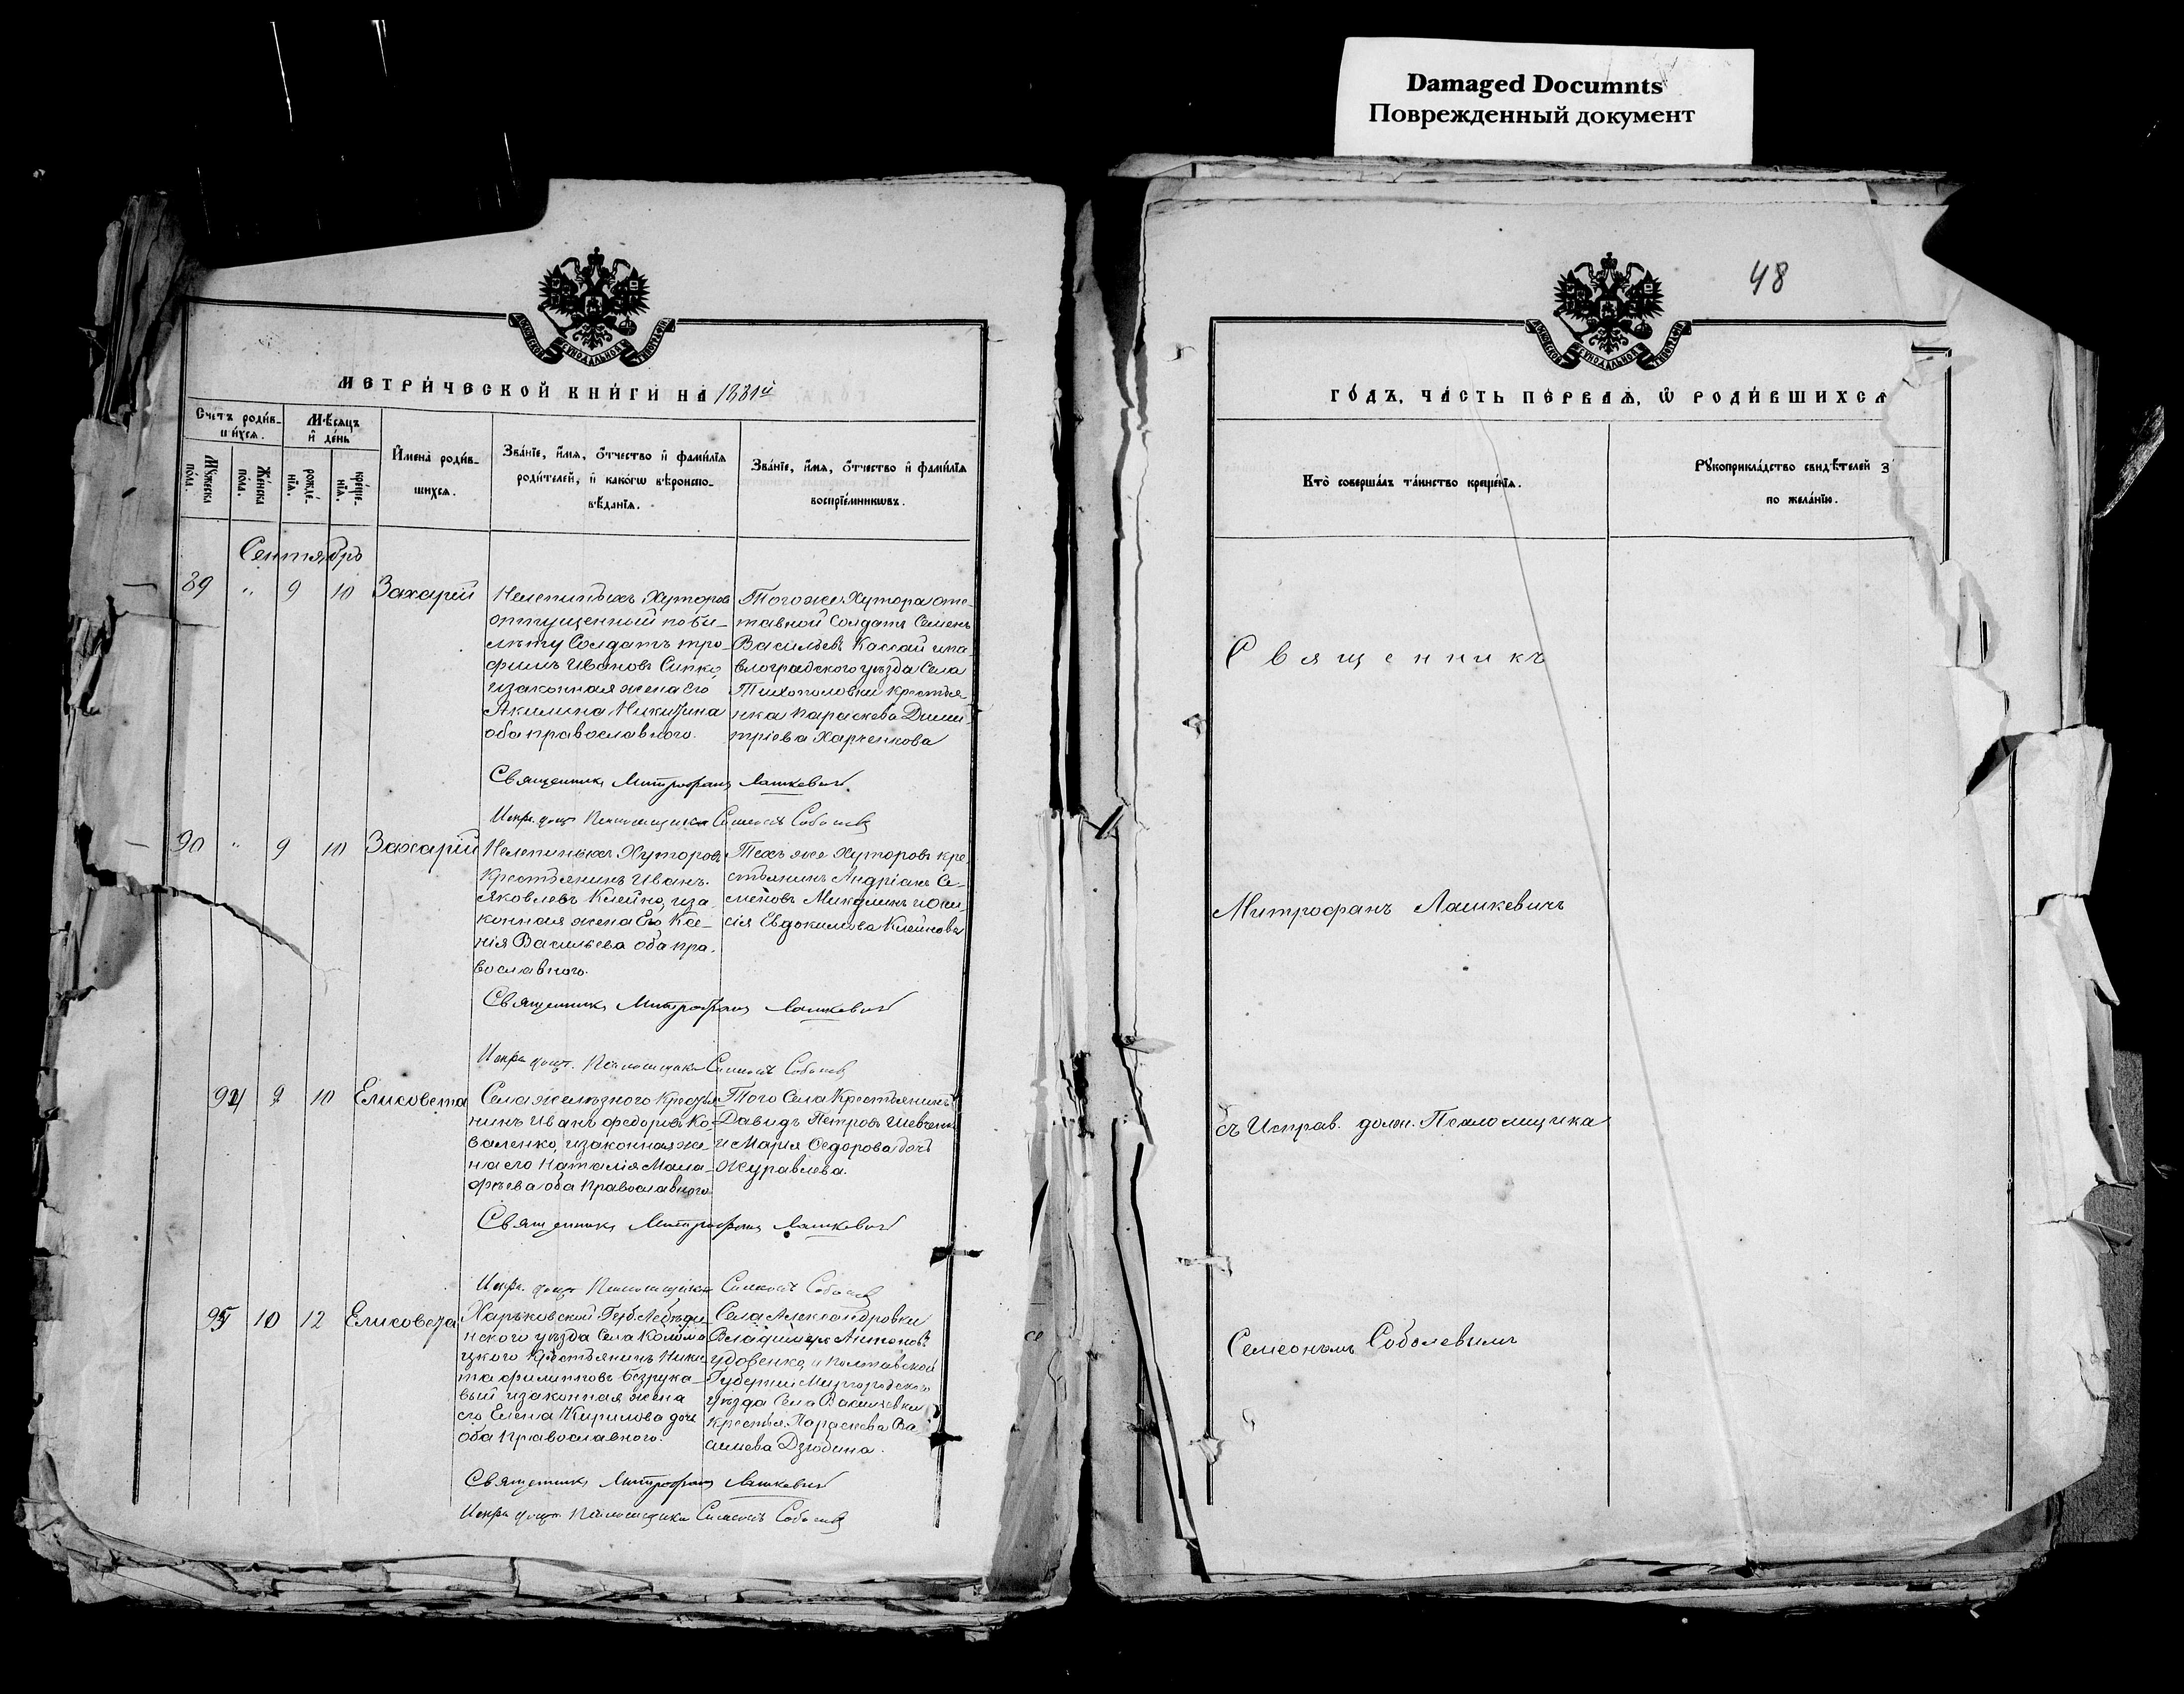 Damaged Documnts
Поврежденный документ
48
МОСКОВСКОЙ СѴНОДАЛЬНОЙ ТИПОГРАФІИ
МЕТРИ́ЧЕСКОЙ КНИ́ГИ НА 1881й
Сче́тъ роди́в-
ши́хся.
Мꙋ́жеска по́ла.
Же́нска по́ла.
Мѣ́сяцъ
и҆ де́нь
рожде́-
нїѧ.
креще́-
нїѧ.
И҆мена̀ роди́в-
шихся.
Зва́нїе, и҆́мѧ, ѻ҆́тчество и҆ фами́лїѧ
роди́телей, и҆ како́гѡ вѣроиспо-
вѣ́данїѧ.
Зва́нїе, и҆́мѧ, ѻ҆́тчество и҆ фами́лїѧ
воспрїе́мникѡвъ.
Сентябрь
89 " 9 10 Захарій
Нелепиныхъ Хуторов
отпущенный по би-
лѣту Солдатъ Тро-
фимъ Ивановъ Сипко,
и законная жена Его
Акилина Никитина
оба православного.
Того же Хутора отс-
тавной Солдатъ Семенъ
Васильевъ Кассай и Па-
влоградского уѣзда Села
крестья-
нка Параскева Дими
тріева Харченкова
Священникъ Митрофанъ Лашкевичъ
Испр. долж. Псаломщика Симеонъ Соболевъ
90 " 9 10 Захарій
Нелепиныхъ Хуторовъ
Крестьянинъ Иванъ
Яковлевъ Клейно, и за-
конная жена Его Ксе-
нія Васильева оба пра-
вославного.
Техъ же Хуторовъ кре-
стьянинъ Андріанъ Се-
меновъ
сія Евдокимова Клейнова
Священникъ Митрофанъ Лашкевичъ
Испр. долж. Псаломщика Симеонъ Соболевъ
9 10 Елисовета
Села Желѣзного Крестья-
нинъ Иванъ Федоровъ Ко-
валенко, и законная же-
на его Наталія Мала-
фѣева оба Православного
Того Села Крестьянинъ
Давидъ Петровъ Шевченко
и Марія Федорова дочь
Журавлева.
Священникъ Митрофанъ Лашкевичъ
Испр. долж. Псаломщика Симеонъ Соболевъ
10 12 Елисовета
Харьковской Губ. Лебеди-
нского уѣзда Села
Крестьянинъ Ники
та Филиповъ Безрука-
вый и законная жена
его Елена Кирилова дочь
оба Православного.
Села Александровки
Владиміръ Антоновъ
Удовенко, и Полтавской
Губерніи Миргородского
уѣзда Села Василевки
крестья. Параскева Ва
силиева Дзюбина.
Священникъ Митрофанъ Лашкевичъ
Испр. долж. Псаломщика Симеонъ Соболевъ
МОСКОВСКОЙ СѴНОДАЛЬНОЙ ТИПОГРАФІИ
ГО́ДЪ, ЧА́СТЬ ПЕ́РВАѦ, Ѽ РОДИ́ВШИХСѦ
Кто̀ соверша́лъ та́инство креще́нїѧ.
Рꙋкоприкла́дство свидѣ́телей з
по жела́нїю.
Священникъ
Митрофанъ Лашкевичъ
съ Исправ. долж. Псаломщика
Семеономъ Соболевымъ